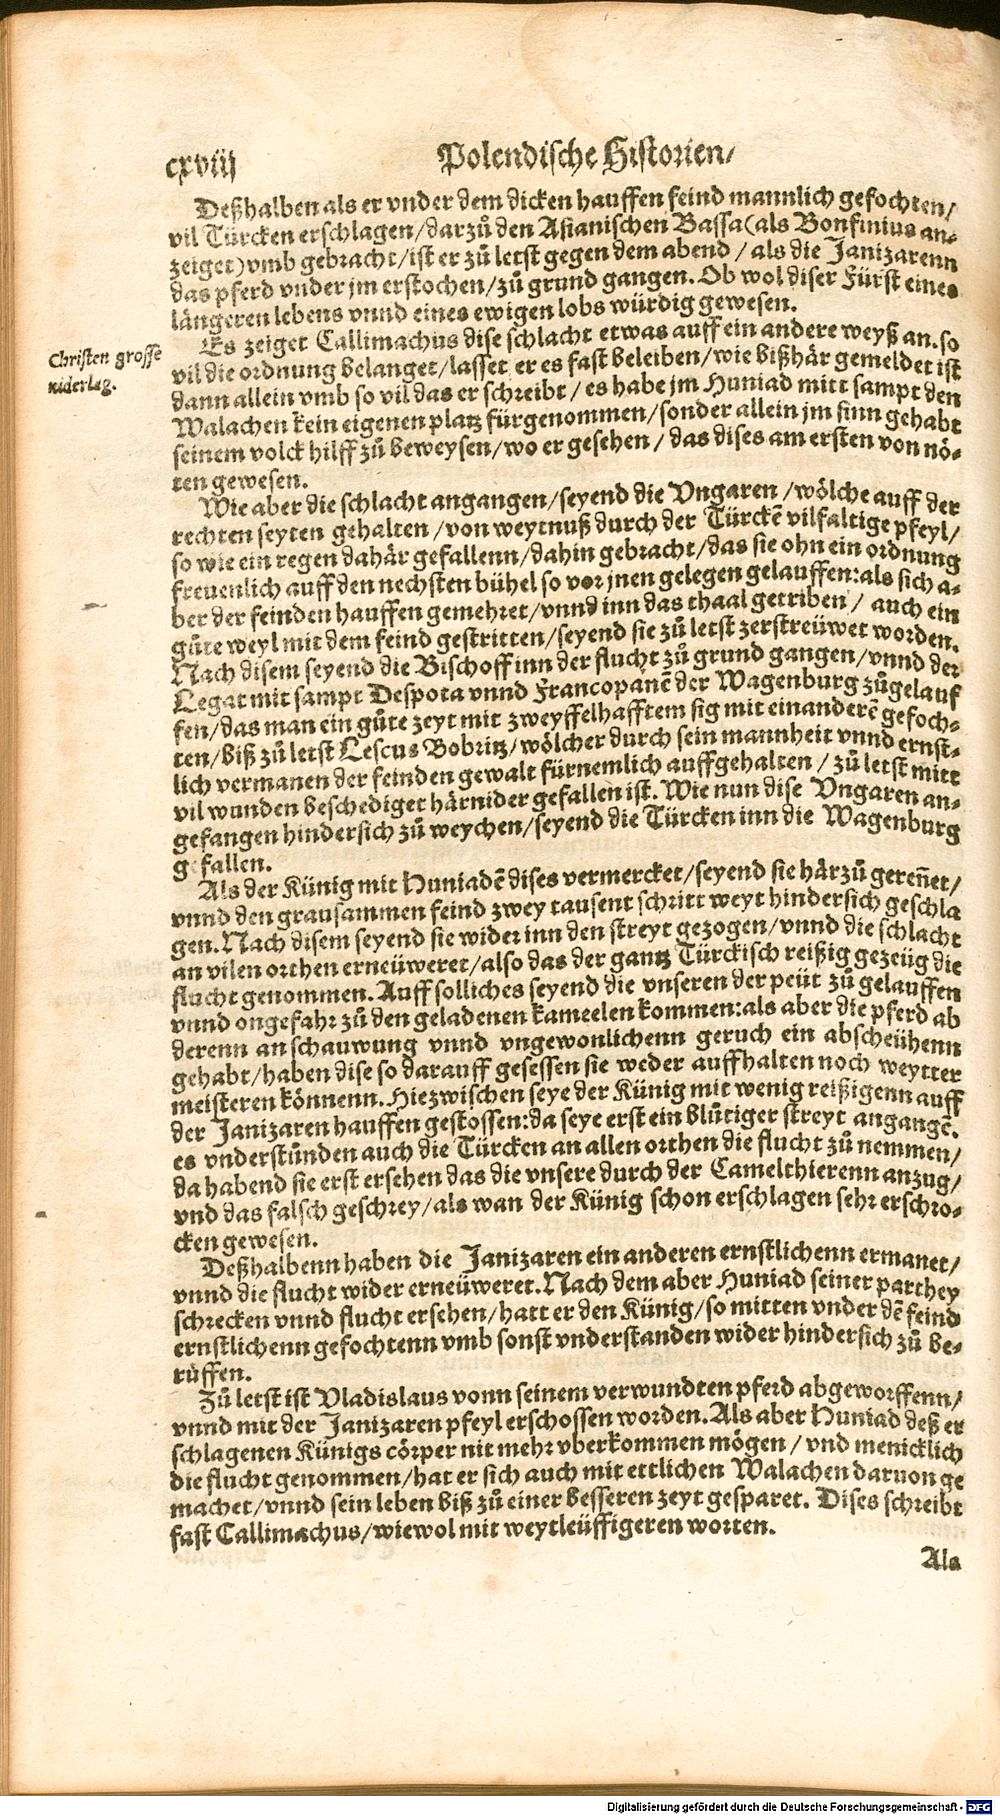 cxviij
Polendische Historien/
Deßhalben als er vnder dem dicken hauffen feind mannlich gefochten/
vil Türcken erschlagen/darzů den Asianischen Bassa(als Bonfinius an-
zeiget)vmb gebracht/ist er zů letst gegen dem abend / als die Janizarenn
das pferd vnder jm erstochen/zů grund gangen. Ob wol diser Fürst eines
längeren lebens vnnd eines ewigen lobs würdig gewesen.
Christen grosse
niderlag.
Es zeiget Callimachus dise schlacht etwas auff ein andere weyß an. so
vil die ordnung belanget/lasset er es fast beleiben/wie bißhär gemeldet ist
dann allein vmb so vil das er schreibt / es habe jm Huniad mitt sampt den
Walachen kein eigenen platz fürgenommen/sonder allein jm sinn gehabt
seinem volck hilff zů beweysen/wo er gesehen / das dises am ersten von nö-
ten gewesen.
Wie aber die schlacht angangen/seyend die Vngaren /wölche auff der
rechten seyten gehalten /von weytnuß durch der Türckē vilfaltige pfeyl/
so wie ein regen dahär gefallenn/dahin gebracht/das sie ohn ein ordnung
freuenlich auff den nechsten bühel so vor jnen gelegen gelauffen:als sich a-
ber der feinden hauffen gemehret/vnnd inn das thaal getriben / auch ein
gůte weyl mit dem feind gestritten/seyend sie zů letst zerstreüwet worden.
Nach disem seyend die Bischoff inn der flucht zů grund gangen/vnnd der
Legat mit sampt Despota vnnd Francopanē der Wagenburg zůgelauf
fen/das man ein gůte zeyt mit zweyffelhafftem sig mit einanderē gefoch-
ten/biß zů letst Lescus Bobritz/wölcher durch sein mannheit vnnd ernst-
lich vermanen der feinden gewalt fürnemlich auffgehalten / zů letst mitt
vil wunden beschediget härnider gefallen ist. Wie nun dise Vngaren an-
gefangen hindersich zů weychen/seyend die Türcken inn die Wagenburg
gefallen.
Als der Künig mit Huniadē dises vermercket/seyend sie härzů gereñet/
vnnd den grausammen feind zwey tausent schritt weyt hindersich geschla
gen. Nach disem seyend sie wider inn den streyt gezogen/vnnd die schlacht
an vilen orthen erneüweret/also das der gantz Türckisch reißig gezeüg die
flucht genommen. Auff solliches seyend die vnseren der peüt zů gelauffen
vnnd ongefahr zů den geladenen kameelen kommen:als aber die pferd ab
derenn anschauwung vnnd vngewonlichenn geruch ein abscheühenn
gehabt/haben dise so darauff gesessen sie weder auffhalten noch weytter
meisteren könnenn. Hiezwischen seye der Künig mit wenig reißigenn auff
der Janizaren hauffen gestossen:da seye erst ein blůtiger streyt angangē.
es vnderstünden auch die Türcken an allen orthen die flucht zů nemmen/
da habend sie erst ersehen das die vnsere durch der Camelthierenn anzug/
vnd das falsch geschrey/als wan der Künig schon erschlagen sehr erschro-
cken gewesen.
Deßhalbenn haben die Janizaren ein anderen ernstlichenn ermanet/
vnnd die flucht wider erneüweret. Nach dem aber Huniad seiner parthey
schrecken vnnd flucht ersehen/hatt er den Künig/so mitten vnder dē feind
ernstlichenn gefochtenn vmb sonst vnderstanden wider hindersich zů be-
rüffen.
Zů letst ist Vladislaus vonn seinem verwundten pferd abgeworffenn/
vnnd mit der Janizaren pfeyl erschossen worden. Als aber Huniad deß er
schlagenen Künigs cörper nit mehr vberkommen mögen / vnd menicklich
die flucht genommen/hat er sich auch mit ettlichen Walachen daruon ge
machet/vnnd sein leben biß zů einer besseren zeyt gesparet. Dises schreibt
fast Callimachus/wiewol mit weytleüffigeren worten.
Als
Digitalisierung gefördert durch die Deutsche Forschungsgemeinschaft - DFG